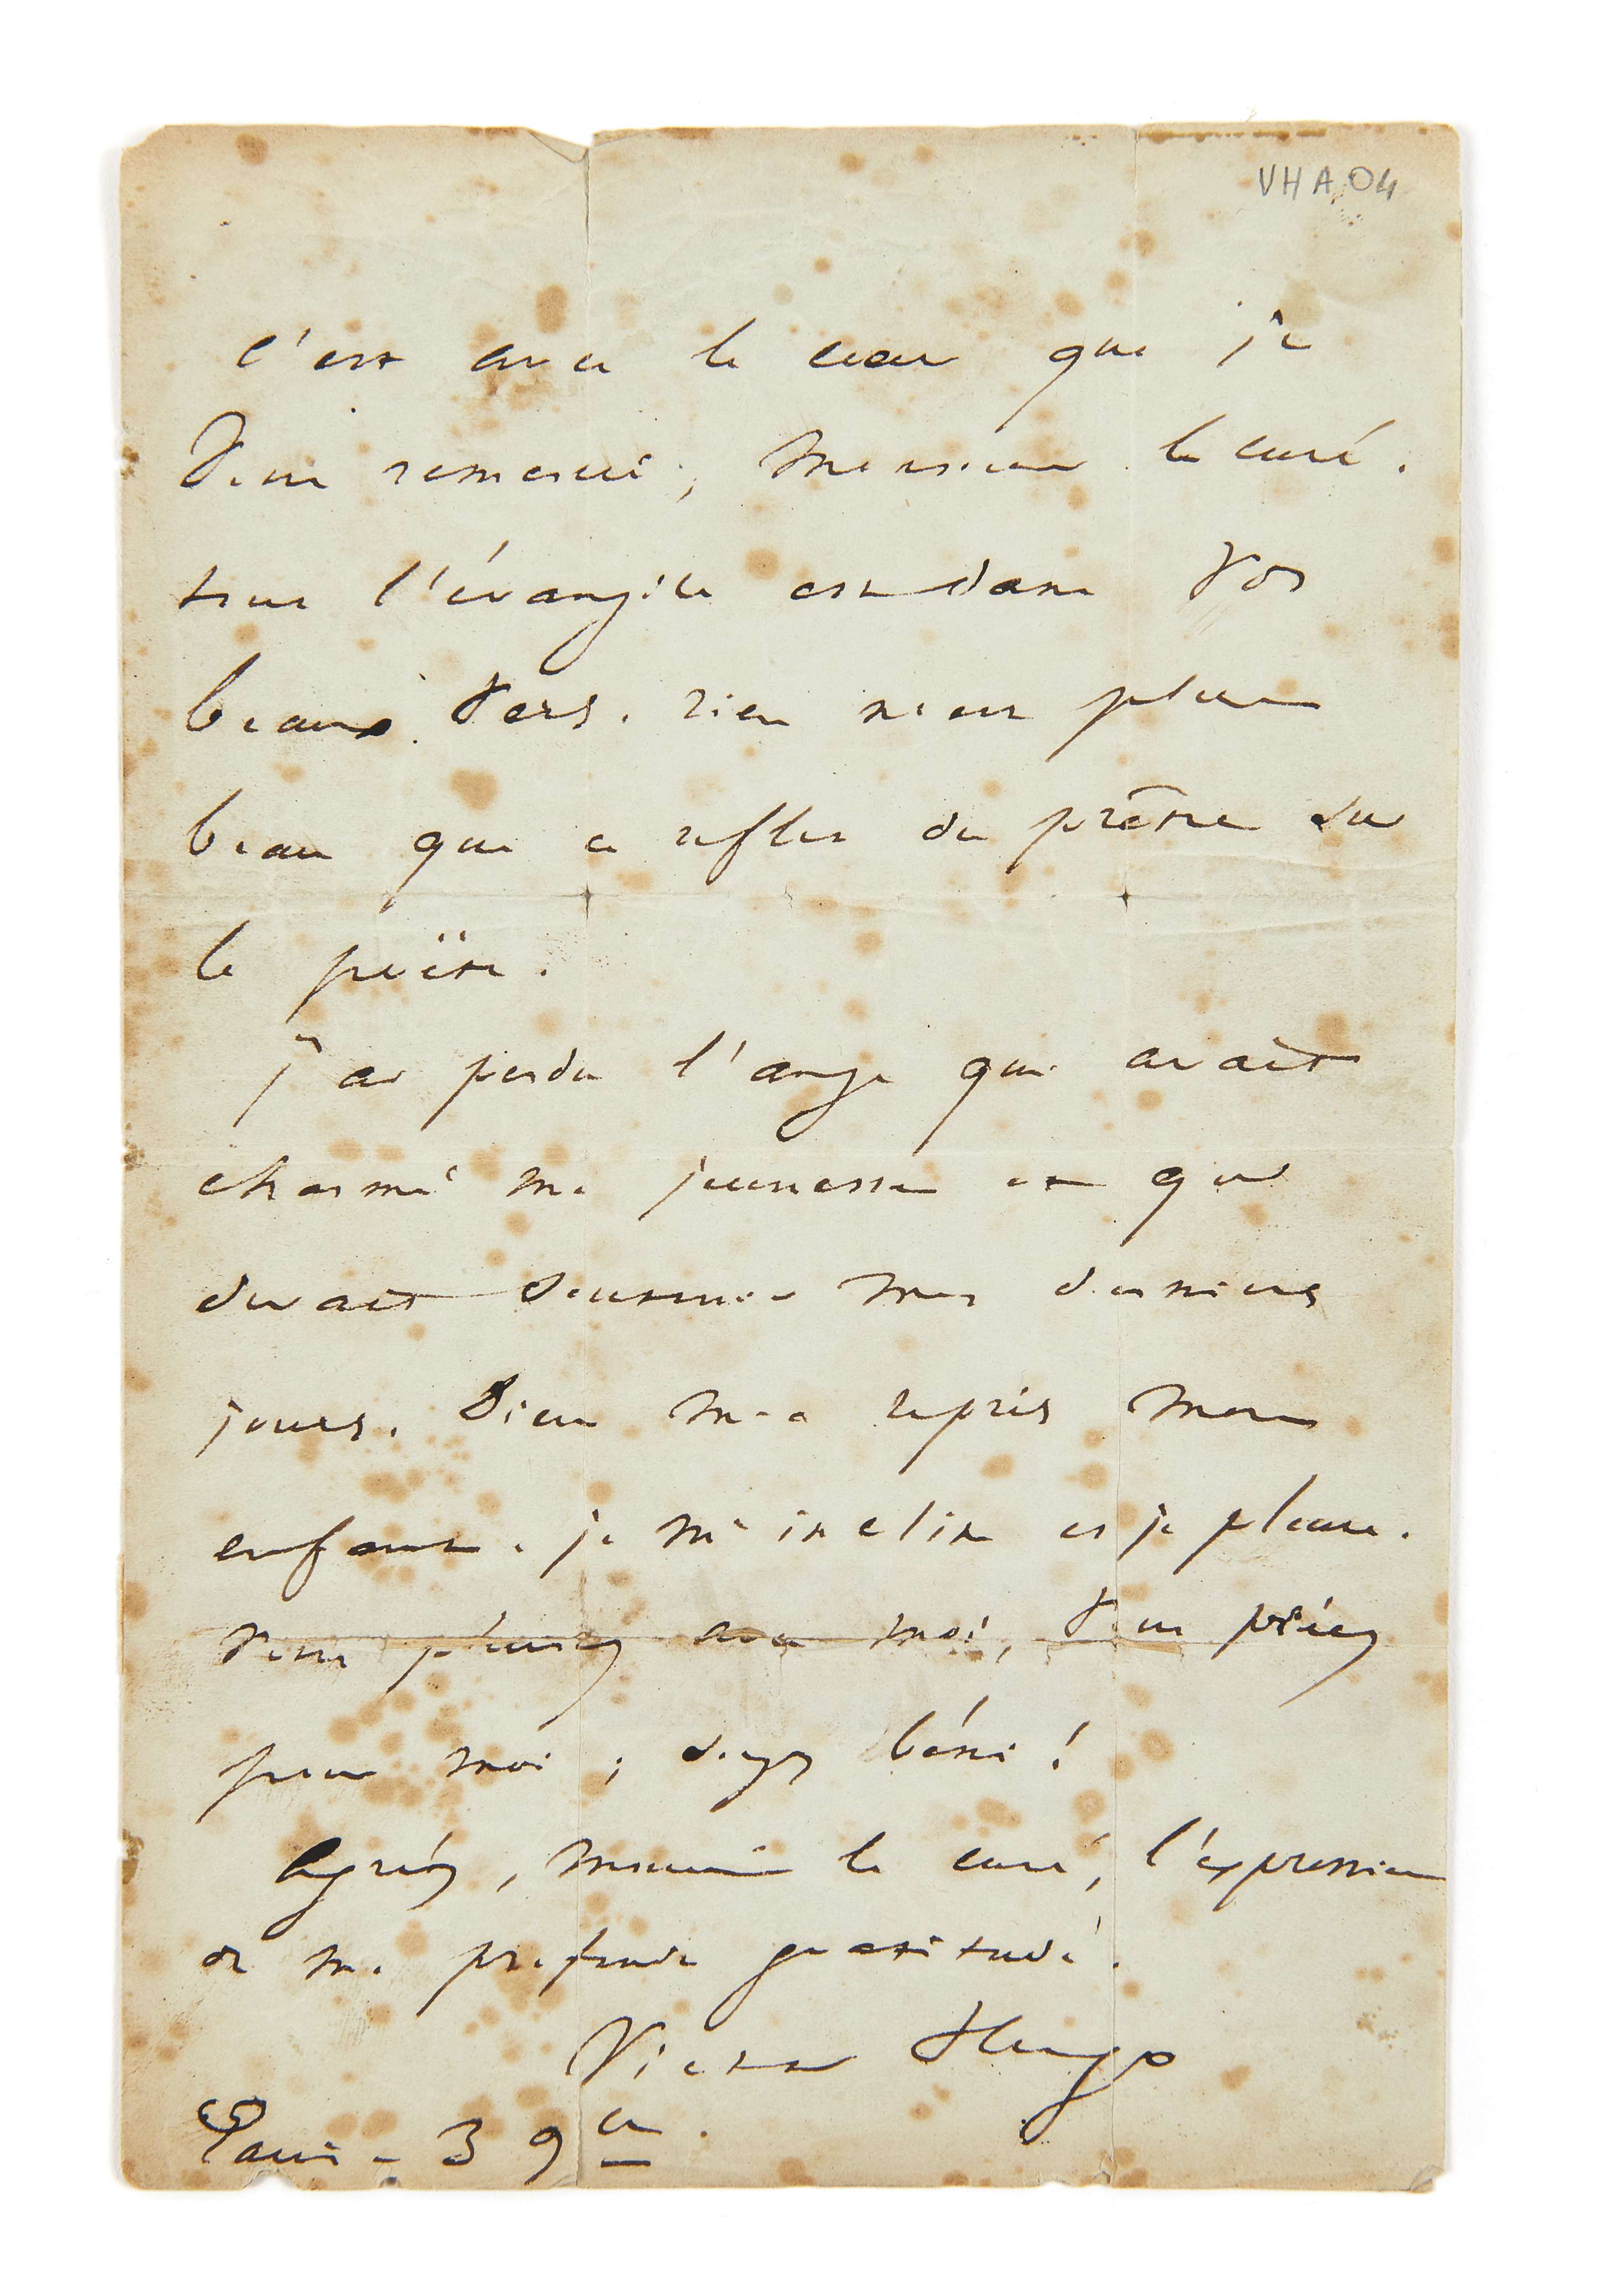 VHA 04
C'est avec le cœur que je
vous remercie, Monsieur le curé.
tout l'évangile est dans vos
beaux vers. rien n'est plus
beau que ce reflet du prêtre sur
le poëte.
J'ai perdu l'ange qui avait
charmé ma jeunesse et qui
devait soutenir mes derniers
jours. Dieu m'a repris mon
enfant. je m'incline et je pleure.
Vous pleurez avec moi, vous priez
pour moi ; soyez béni !
Agréez, Monsieur le curé, l'expression
de ma profonde gratitude.
Victor Hugo
Paris - 3 9bre.